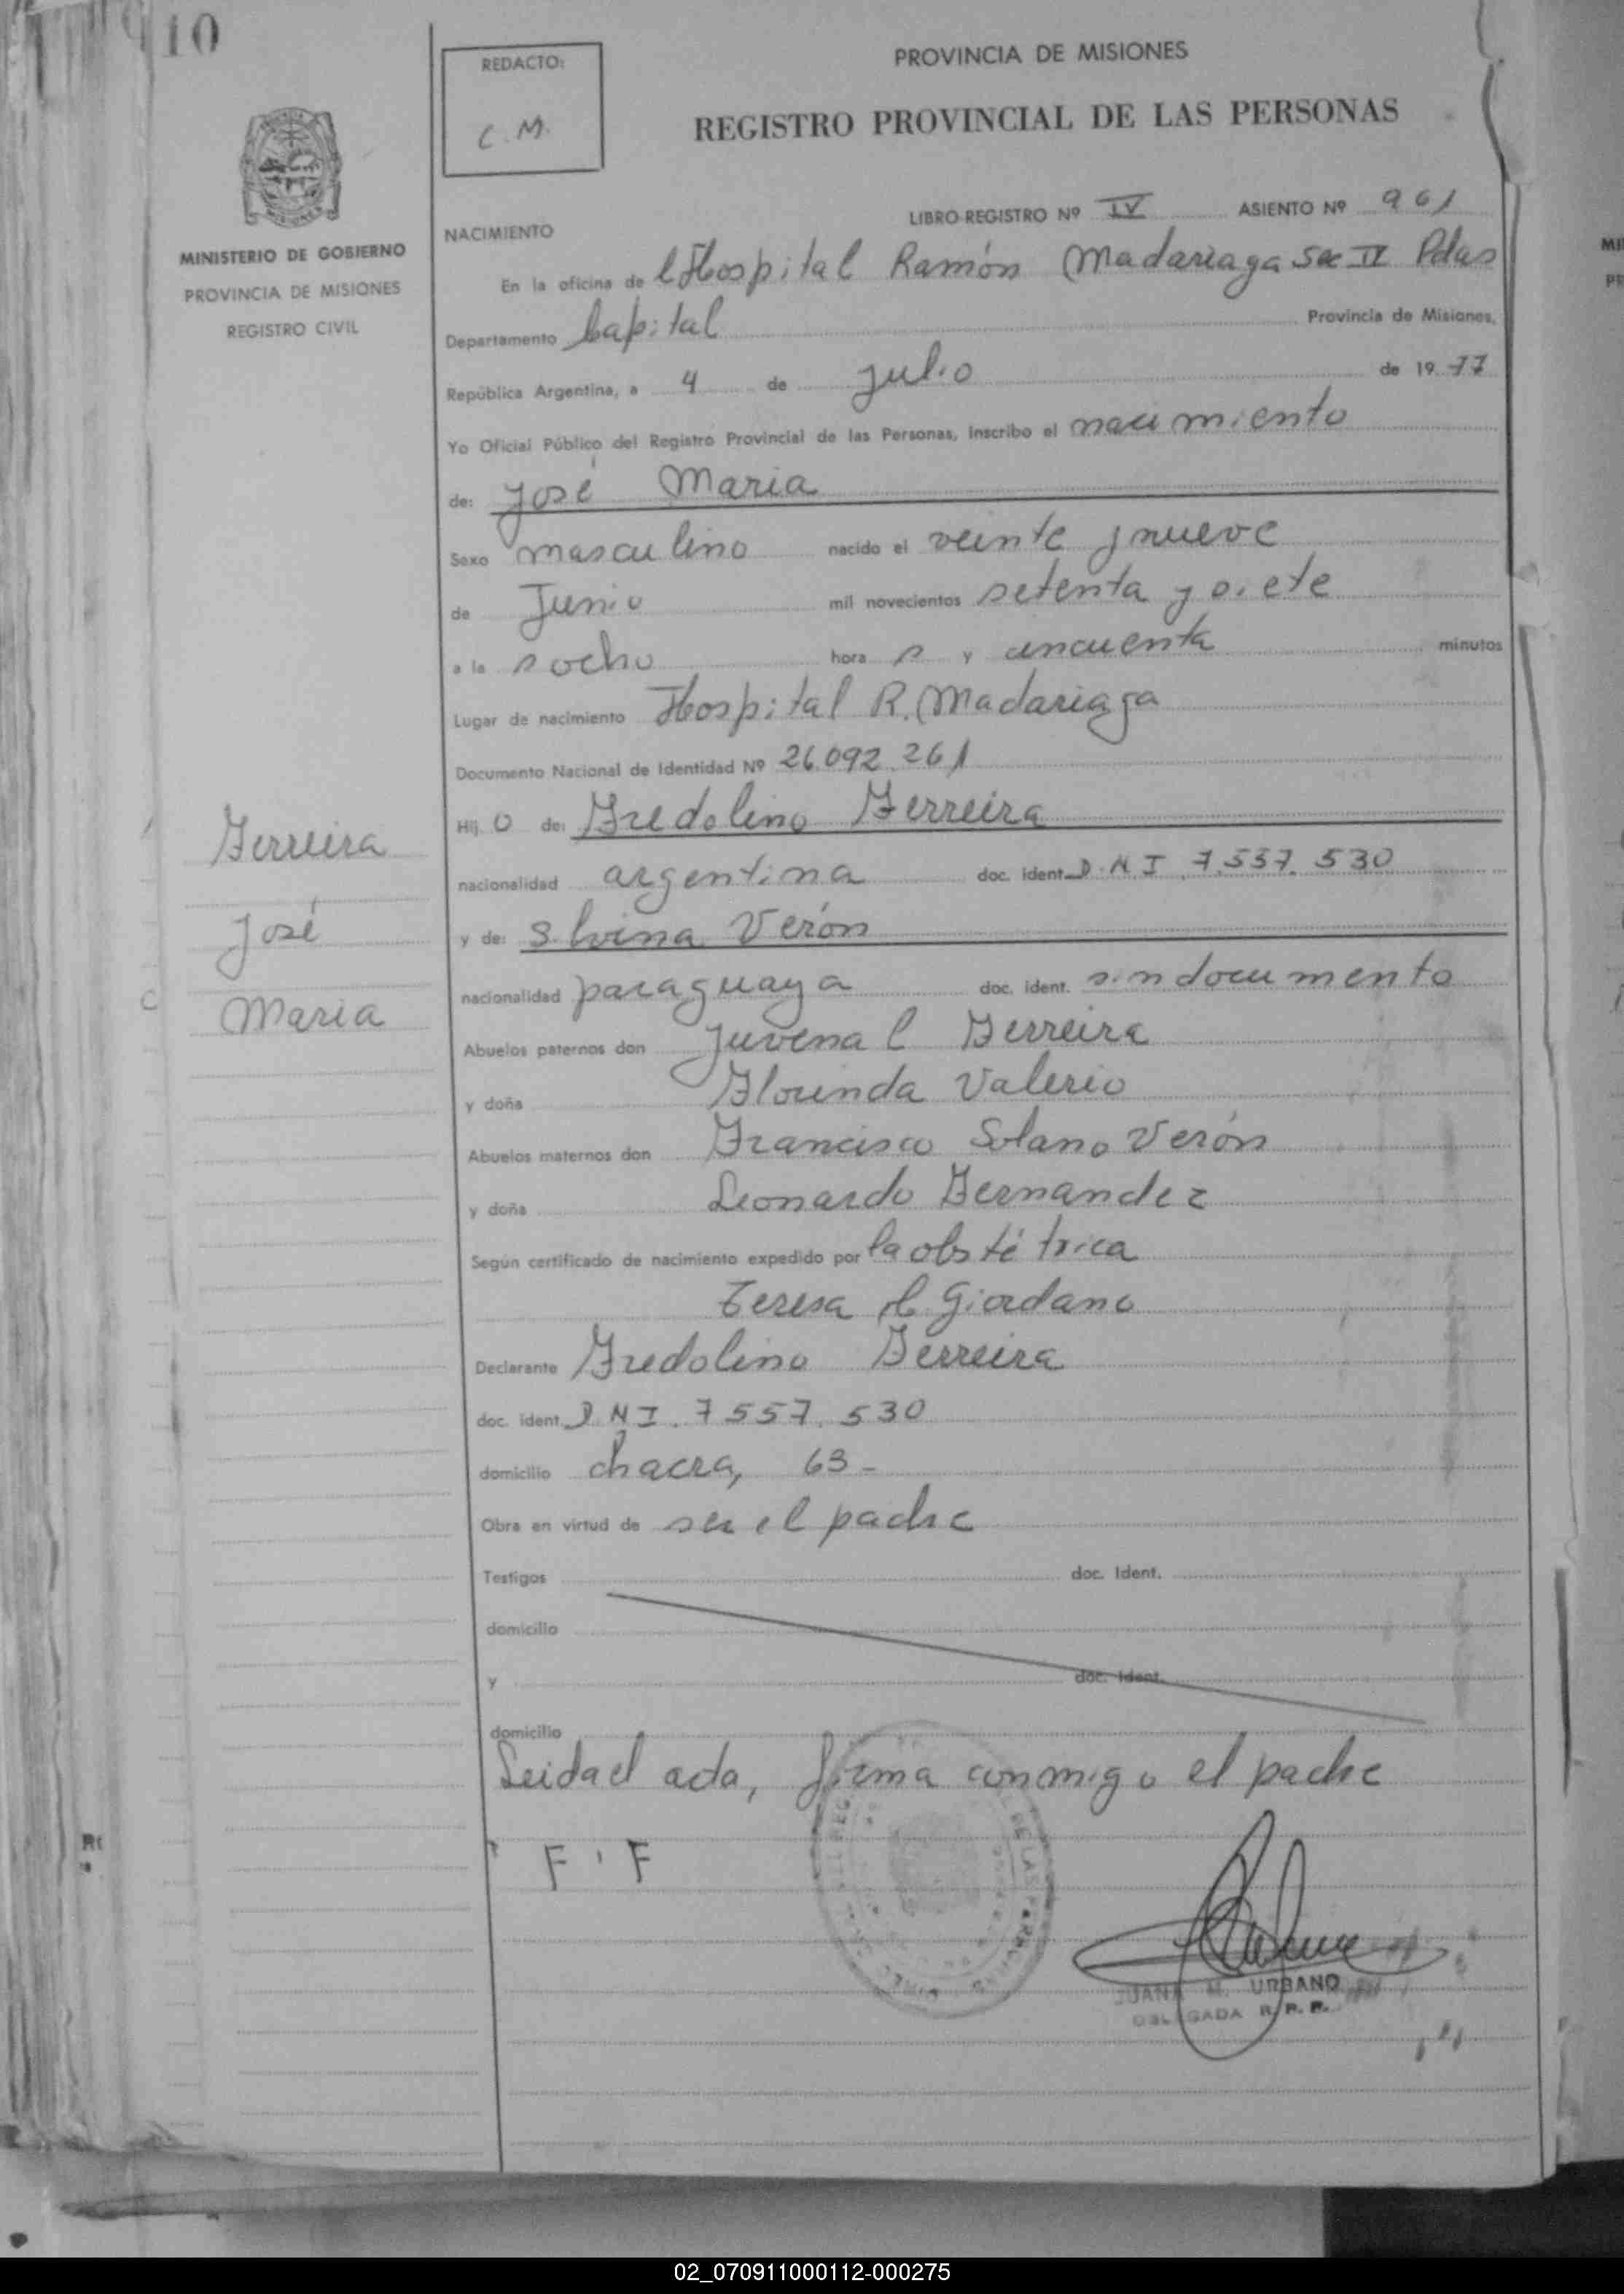 10
REDACTO:
C.M.
PROVINCIA DE MISIONES
REGISTRO PROVINCIAL DE LAS PERSONAS
MINISTERIO DE GOBIERNO
PROVINCIA DE MISIONES
REGISTRO CIVIL
LIBRO-REGISTRO Nº IV ASIENTO Nº 961
NACIMIENTO
En la oficina de Hospital Ramón Madariaga Sec IV Pdas
Departamento Capital Provincia de Misiones,
República Argentina, a 4 de Julio de 19 77
Yo Oficial Público del Registro Provincial de las Personas, inscribo el nacimiento
de: José Maria
Sexo masculino nacido el veinte y nueve
de Junio mil novecientos setenta y siete
a la s ocho hora s y cincuenta minutos
Lugar de nacimiento Hospital R. Madariaga
Documento Nacional de Identidad Nº 26.092.261
Hij o de: Fredolino Ferreira
nacionalidad argentina doc. ident. D.N.I. 7.557.530
y de: Silvina Verón
nacionalidad paraguaya doc. ident. sin documento
Ferreira
José
Maria
Abuelos paternos don Juvenal Ferreira
y doña Florinda Valerio
Abuelos maternos don Francisco Solano Verón
y doña Leonardo Fernandez
Según certificado de nacimiento expedido por la obstétrica
Teresa de Giordano
Declarante Fredolino Ferreira
doc. ident. D.N.I. 7557.530
domicilio chacra, 63-
Obra en virtud de ser el padre
Testigos doc. Ident.
domicilio
y doc. Ident.
domicilio
Leida el acta, firma conmigo el padre
F . F
JUANA M. URBANO
DELEGADA R. P. P.
02_070911000112-000275